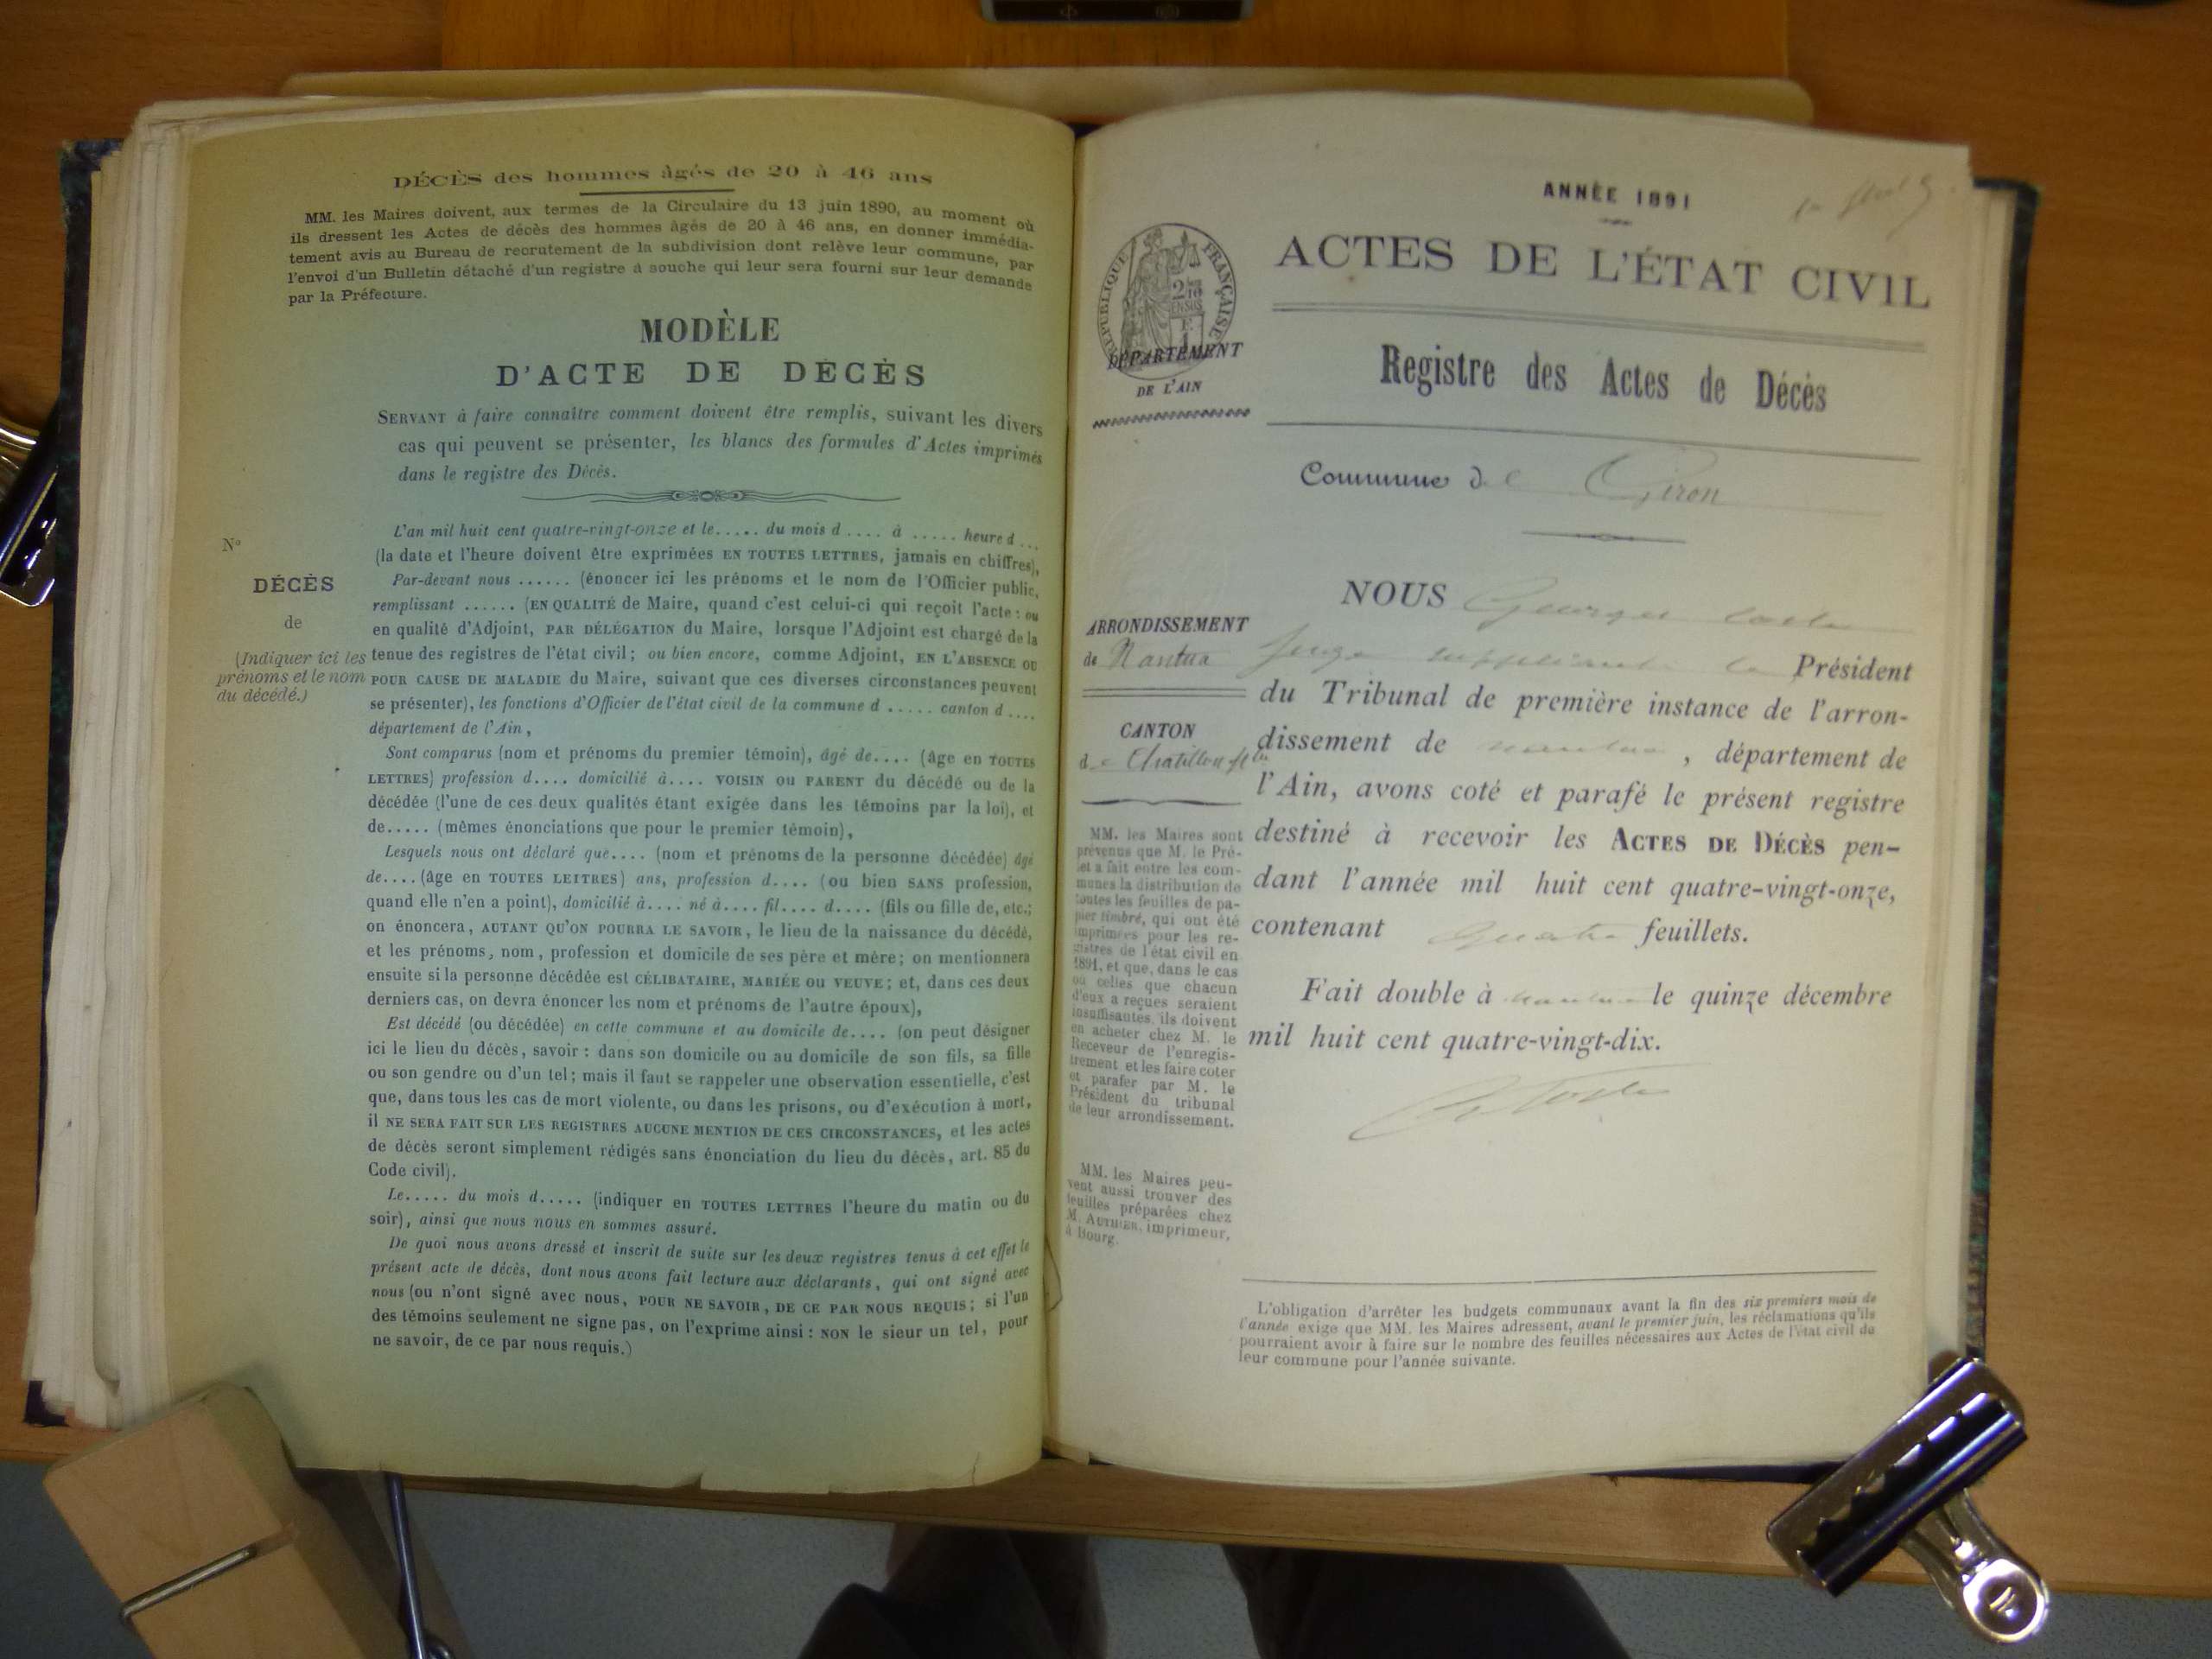 DÉCÈS des hommes âgés de 20 à 46 ans
MM. les Maires doivent, aux termes de la Circulaire du 13 juin 1890, au moment où
ils dressent les Actes de décès des hommes âgés de 20 à 46 ans, en donner immédia-
tement avis au Bureau de recrutement de la subdivision dont relève leur commune, par
l'envoi d'un Bulletin détaché d'un registre à souche qui leur sera fourni sur leur demande
par la Préfecture.
MODÈLE
D'ACTE DE DÉCÈS
SERVANT à faire connaître comment doivent être remplis, suivant les divers
cas qui peuvent se présenter, les blancs des formules d'Actes imprimés
dans le registre des Décès.
N°
DÉCÈS
de
(Indiquer ici les
prénoms et le nom
du décédé.)
L'an mil huit cent quatre-vingt-onze et le..... du mois d .... à ..... heure d ...
(la date et l'heure doivent être exprimées EN TOUTES LETTRES, jamais en chiffres),
Par-devant nous ...... (énoncer ici les prénoms et le nom de l'Officier public,
remplissant ...... (EN QUALITÉ de Maire, quand c'est celui-ci qui reçoit l'acte : ou
en qualité d'Adjoint, PAR DÉLÉGATION du Maire, lorsque l'Adjoint est chargé de la
tenue des registres de l'état civil; ou bien encore, comme Adjoint, EN L'ABSENCE OU
POUR CAUSE DE MALADIE du Maire, suivant que ces diverses circonstances peuvent
se présenter), les fonctions d'Officier de l'état civil de la commune d ..... canton d ....
département de l'Ain,
Sont comparus (nom et prénoms du premier témoin), âgé de.... (âge en TOUTES
LETTRES) profession d.... domicilié à.... VOISIN OU PARENT du décédé ou de la
décédée (l'une de ces deux qualités étant exigée dans les témoins par la loi), et
de..... (mêmes énonciations que pour le premier témoin),
Lesquels nous ont déclaré que.... (nom et prénoms de la personne décédée) âgé
de.... (âge en TOUTES LETTRES) ans, profession d.... (ou bien SANS profession,
quand elle n'en a point), domicilié à.... né à.... fil.... d.... (fils ou fille de, etc.;
on énoncera, AUTANT QU'ON POURRA LE SAVOIR, le lieu de la naissance du décédé,
et les prénoms, nom, profession et domicile de ses père et mère; on mentionnera
ensuite si la personne décédée est CÉLIBATAIRE, MARIÉE OU VEUVE; et, dans ces deux
derniers cas, on devra énoncer les nom et prénoms de l'autre époux),
Est décédé (ou décédée) en cette commune et au domicile de.... (on peut désigner
ici le lieu du décès, savoir : dans son domicile ou au domicile de son fils, sa fille
ou son gendre ou d'un tel; mais il faut se rappeler une observation essentielle, c'est
que, dans tous les cas de mort violente, ou dans les prisons, ou d'exécution à mort,
il NE SERA FAIT SUR LES REGISTRES AUCUNE MENTION DE CES CIRCONSTANCES, et les actes
de décès seront simplement rédigés sans énonciation du lieu du décès, art. 85 du
Code civil).
Le..... du mois d..... (indiquer en TOUTES LETTRES l'heure du matin ou du
soir), ainsi que nous nous en sommes assuré.
De quoi nous avons dressé et inscrit de suite sur les deux registres tenus à cet effet le
présent acte de décès, dont nous avons fait lecture aux déclarants, qui ont signé avec
nous (ou n'ont signé avec nous, POUR NE SAVOIR, DE CE PAR NOUS REQUIS; si l'un
des témoins seulement ne signe pas, on l'exprime ainsi : NON le sieur un tel, pour
ne savoir, de ce par nous requis.)
ANNÉE 1891
ACTES DE L'ÉTAT CIVIL
RÉPUBLIQUE FRANÇAISE
DÉPARTEMENT
DE L'AIN
Registre des Actes de Décès
Commune de Giron
ARRONDISSEMENT
de Nantua
CANTON
de Chatillon
MM. les Maires sont
prévenus que M. le Pré-
fet a fait entre les com-
munes la distribution de
toutes les feuilles de pa-
pier timbré, qui ont été
imprimées pour les re-
gistres de l'état civil en
1891, et que, dans le cas
où celles que chacun
d'eux a reçues seraient
insuffisantes, ils doivent
en acheter chez M. le
Receveur de l'enregis-
trement et les faire coter
et parafer par M. le
Président du tribunal
de leur arrondissement.
MM. les Maires peu-
vent aussi trouver des
feuilles préparées chez
M. AUTHIER, imprimeur,
à Bourg.
NOUS Georges
Juge suppléant Président
du Tribunal de première instance de l'arron-
dissement de Nantua, département de
l'Ain, avons coté et parafé le présent registre
destiné à recevoir les ACTES DE DÉCÈS pen-
dant l'année mil huit cent quatre-vingt-onze,
contenant quatre feuillets.
Fait double à Nantua le quinze décembre
mil huit cent quatre-vingt-dix.
L'obligation d'arrêter les budgets communaux avant la fin des six premiers mois de
l'année exige que MM. les Maires adressent, avant le premier juin, les réclamations qu'ils
pourraient avoir à faire sur le nombre des feuilles nécessaires aux Actes de l'état civil de
leur commune pour l'année suivante.